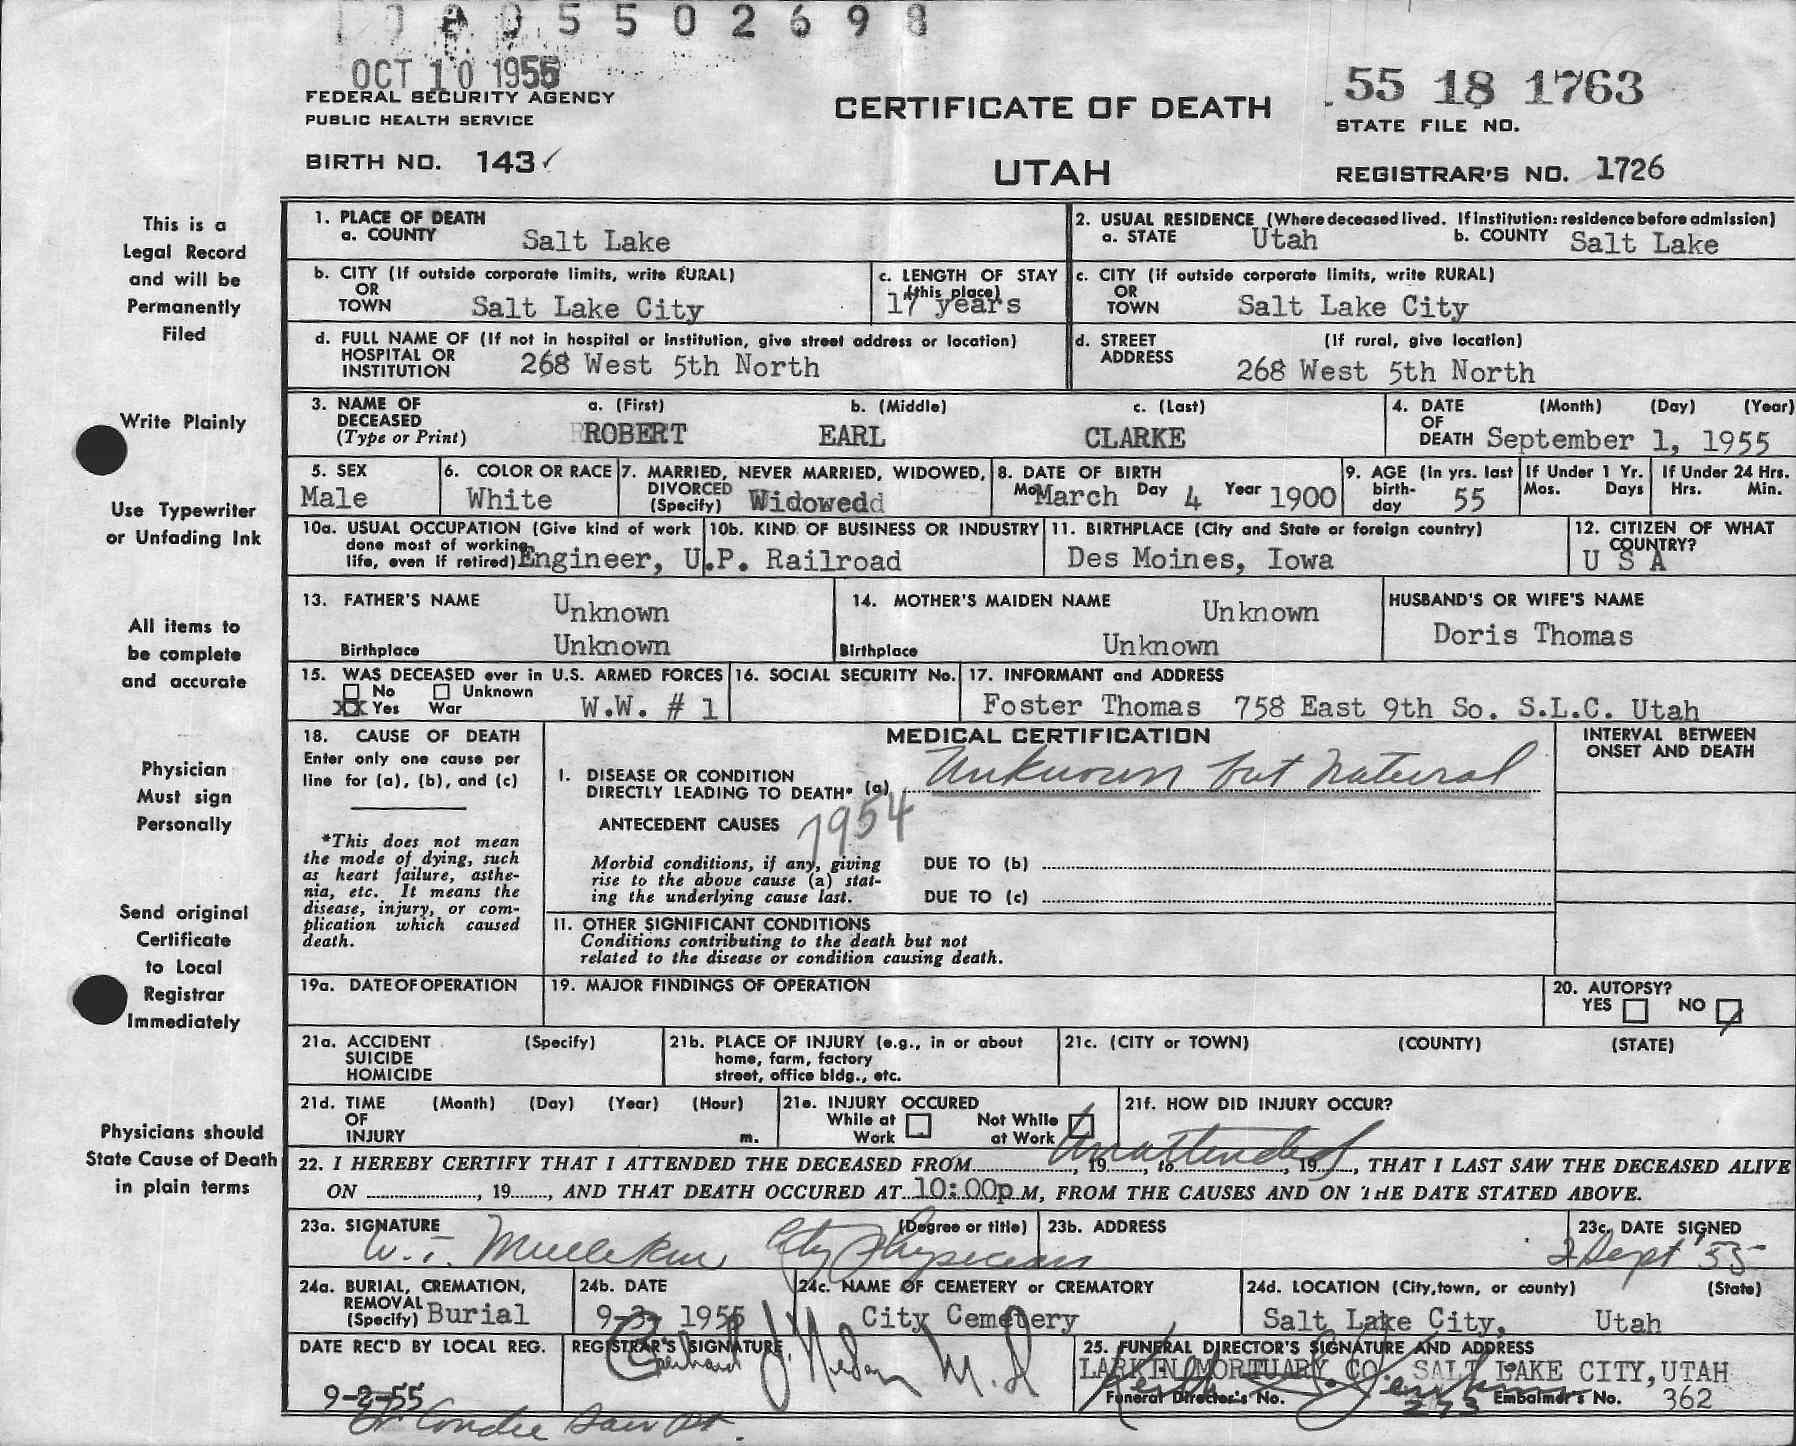 5502698
OCT 10 1955
FEDERAL SECURITY AGENCY
PUBLIC HEALTH SERVICE
BIRTH NO. 143
CERTIFICATE OF DEATH
UTAH
55 18 1763
STATE FILE NO.
REGISTRAR'S NO. 1726
This is a
Legal Record
and will be
Permanently
Filed
Write Plainly
Use Typewriter
or Unfading Ink
All items to
be complete
and accurate
Physician
Must sign
Personally
Send original
Certificate
to Local
Registrar
Immediately
Physicians should
State Cause of Death
in plain terms
1. PLACE OF DEATH
a. COUNTY Salt Lake
2. USUAL RESIDENCE (Where deceased lived. If institution: residence before admission)
a. STATE Utah b. COUNTY Salt Lake
b. CITY (If outside corporate limits, write RURAL)
OR
TOWN Salt Lake City
c. LENGTH OF STAY
(this place)
17 years
c. CITY (if outside corporate limits, write RURAL)
OR
TOWN Salt Lake City
d. FULL NAME OF (If not in hospital or institution, give street address or location)
HOSPITAL OR
INSTITUTION 268 West 5th North
d. STREET (If rural, give location)
ADDRESS
268 West 5th North
3. NAME OF
DECEASED
(Type or Print)
a. (First) b. (Middle) c. (Last)
ROBERT EARL CLARKE
4. DATE (Month) (Day) (Year)
OF
DEATH September 1, 1955
5. SEX
Male
6. COLOR OR RACE
White
7. MARRIED, NEVER MARRIED, WIDOWED,
DIVORCED
(Specify) Widowedd
8. DATE OF BIRTH
Mo March Day 4 Year 1900
9. AGE (In yrs. last
birth-
day 55
If Under 1 Yr.
Mos. Days
If Under 24 Hrs.
Hrs. Min.
10a. USUAL OCCUPATION (Give kind of work
done most of working
life, even if retired) Engineer, U.P. Railroad
10b. KIND OF BUSINESS OR INDUSTRY
11. BIRTHPLACE (City and State or foreign country)
Des Moines, Iowa
12. CITIZEN OF WHAT
COUNTRY?
U S A
13. FATHER'S NAME Unknown
Birthplace Unknown
14. MOTHER'S MAIDEN NAME Unknown
Birthplace Unknown
HUSBAND'S OR WIFE'S NAME
Doris Thomas
15. WAS DECEASED ever in U.S. ARMED FORCES
No Unknown
XX Yes War W.W. # 1
16. SOCIAL SECURITY No.
17. INFORMANT and ADDRESS
Foster Thomas 758 East 9th So. S.L.C. Utah
18. CAUSE OF DEATH
Enter only one cause per
line for (a), (b), and (c)
*This does not mean
the mode of dying, such
as heart failure, asthe-
nia, etc. It means the
disease, injury, or com-
plication which caused
death.
MEDICAL CERTIFICATION
INTERVAL BETWEEN
ONSET AND DEATH
I. DISEASE OR CONDITION
DIRECTLY LEADING TO DEATH* (a) Unknown but natural
ANTECEDENT CAUSES 7954
Morbid conditions, if any, giving
rise to the above cause (a) stat-
ing the underlying cause last.
DUE TO (b)
DUE TO (c)
II. OTHER SIGNIFICANT CONDITIONS
Conditions contributing to the death but not
related to the disease or condition causing death.
19a. DATE OF OPERATION
19. MAJOR FINDINGS OF OPERATION
20. AUTOPSY?
YES NO
21a. ACCIDENT (Specify)
SUICIDE
HOMICIDE
21b. PLACE OF INJURY (e.g., in or about
home, farm, factory
street, office bldg., etc.
21c. (CITY or TOWN) (COUNTY) (STATE)
21d. TIME (Month) (Day) (Year) (Hour)
OF
INJURY m.
21e. INJURY OCCURED
While at Work Not While at Work
21f. HOW DID INJURY OCCUR?
Unattended
22. I HEREBY CERTIFY THAT I ATTENDED THE DECEASED FROM , 19 , to , 19 , THAT I LAST SAW THE DECEASED ALIVE
ON , 19 , AND THAT DEATH OCCURED AT 10:00p M, FROM THE CAUSES AND ON THE DATE STATED ABOVE.
23a. SIGNATURE (Degree or title)
W. T. City Physician
23b. ADDRESS
23c. DATE SIGNED
2 Sept '55
24a. BURIAL, CREMATION,
REMOVAL
(Specify) Burial
24b. DATE
9-3 1955
24c. NAME OF CEMETERY or CREMATORY
City Cemetery
24d. LOCATION (City, town, or county) (State)
Salt Lake City, Utah
DATE REC'D BY LOCAL REG.
9-2-55
REGISTRAR'S SIGNATURE
M.D
25. FUNERAL DIRECTOR'S SIGNATURE AND ADDRESS
LARKIN MORTUARY CO. SALT LAKE CITY, UTAH
Funeral Director's No. 273 Embalmer's No. 362
Dr Condie